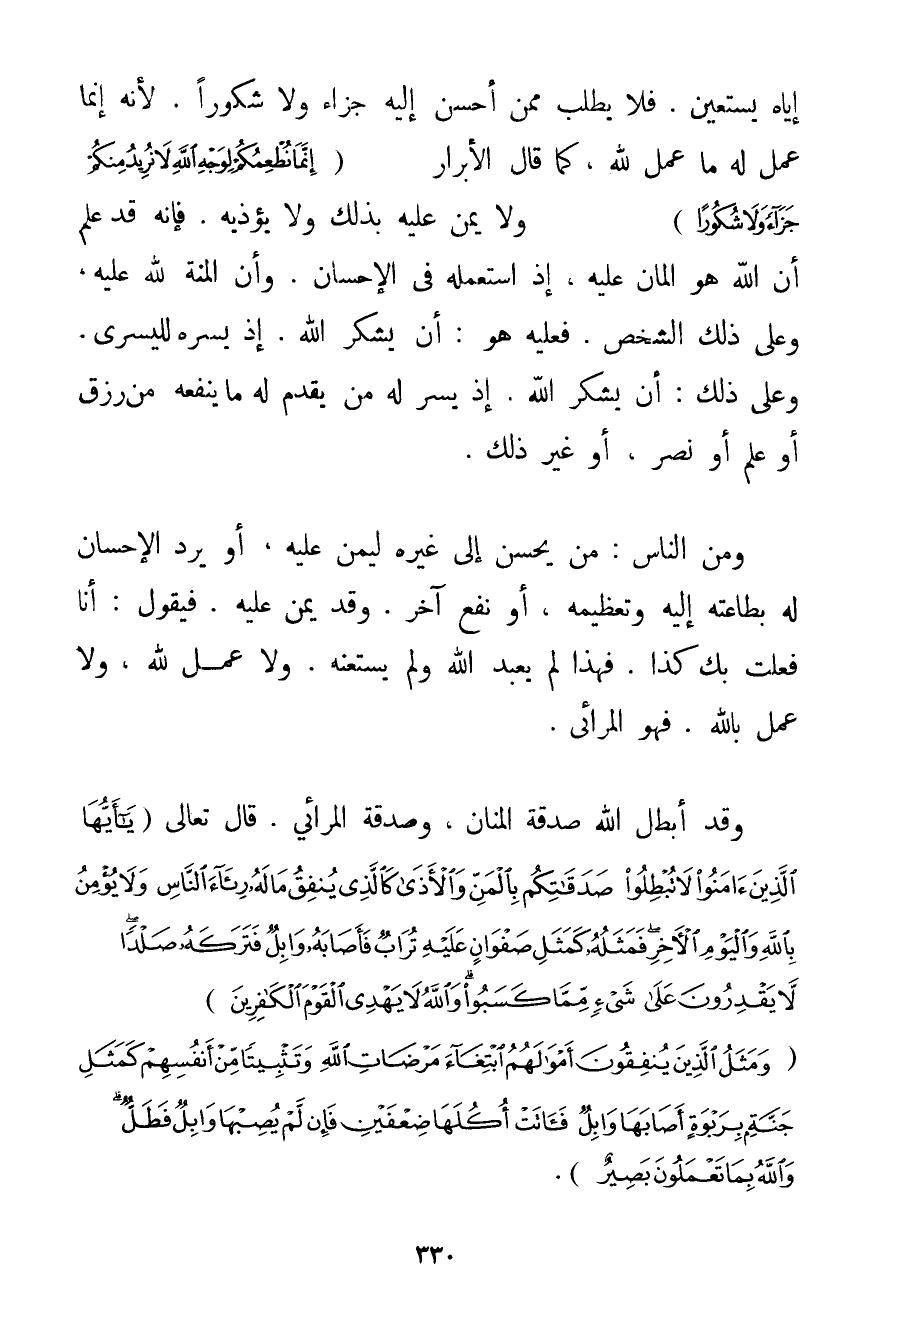 إياه يستعين . فلا يطلب ممن أحسن إليه جزاء ولا شكوراً . لأنه إنما
عمل له ما عمل لله ، كما قال الأبرار ( إِنَّمَا نُطْعِمُكُمْ لِوَجْهِ ٱللَّهِ لَا نُرِيدُ مِنكُمْ
جَزَآءً وَلَا شُكُورًا ) ولا يمن عليه بذلك ولا يؤذيه . فإنه قد علم
أن الله هو المان عليه ، إذ استعمله فى الإحسان . وأن المنة لله عليه ،
وعلى ذلك الشخص . فعليه هو : أن يشكر الله . إذ يسره لليسرى .
وعلى ذلك : أن يشكر الله . إذ يسر له من يقدم له ما ينفعه من رزق
أو علم أو نصر ، أو غير ذلك .
ومن الناس : من يحسن إلى غيره ليمن عليه ، أو يرد الإحسان
له بطاعته إليه وتعظيمه ، أو نفع آخر . وقد يمن عليه . فيقول : أنا
فعلت بك كذا . فهذا لم يعبد الله ولم يستعنه . ولا عمل لله ، ولا
عمل بالله . فهو المرائى .
وقد أبطل الله صدقة المنان ، وصدقة المرائي . قال تعالى ( يَـٰٓأَيُّهَا
ٱلَّذِينَ ءَامَنُوا۟ لَا تُبْطِلُوا۟ صَدَقَـٰتِكُم بِٱلْمَنِّ وَٱلْأَذَىٰ كَٱلَّذِى يُنفِقُ مَالَهُۥ رِئَآءَ ٱلنَّاسِ وَلَا يُؤْمِنُ
بِٱللَّهِ وَٱلْيَوْمِ ٱلْأَخِرِ ۖ فَمَثَلُهُۥ كَمَثَلِ صَفْوَانٍ عَلَيْهِ تُرَابٌ فَأَصَابَهُۥ وَابِلٌ فَتَرَكَهُۥ صَلْدًا ۖ
لَّا يَقْدِرُونَ عَلَىٰ شَىْءٍ مِّمَّا كَسَبُوا۟ ۗ وَٱللَّهُ لَا يَهْدِى ٱلْقَوْمَ ٱلْكَـٰفِرِينَ )
( وَمَثَلُ ٱلَّذِينَ يُنفِقُونَ أَمْوَٰلَهُمُ ٱبْتِغَآءَ مَرْضَاتِ ٱللَّهِ وَتَثْبِيتًا مِّنْ أَنفُسِهِمْ كَمَثَلِ
جَنَّةٍۭ بِرَبْوَةٍ أَصَابَهَا وَابِلٌ فَـَٔاتَتْ أُكُلَهَا ضِعْفَيْنِ فَإِن لَّمْ يُصِبْهَا وَابِلٌ فَطَلٌّ ۗ
وَٱللَّهُ بِمَا تَعْمَلُونَ بَصِيرٌ ) .
٣٣٠